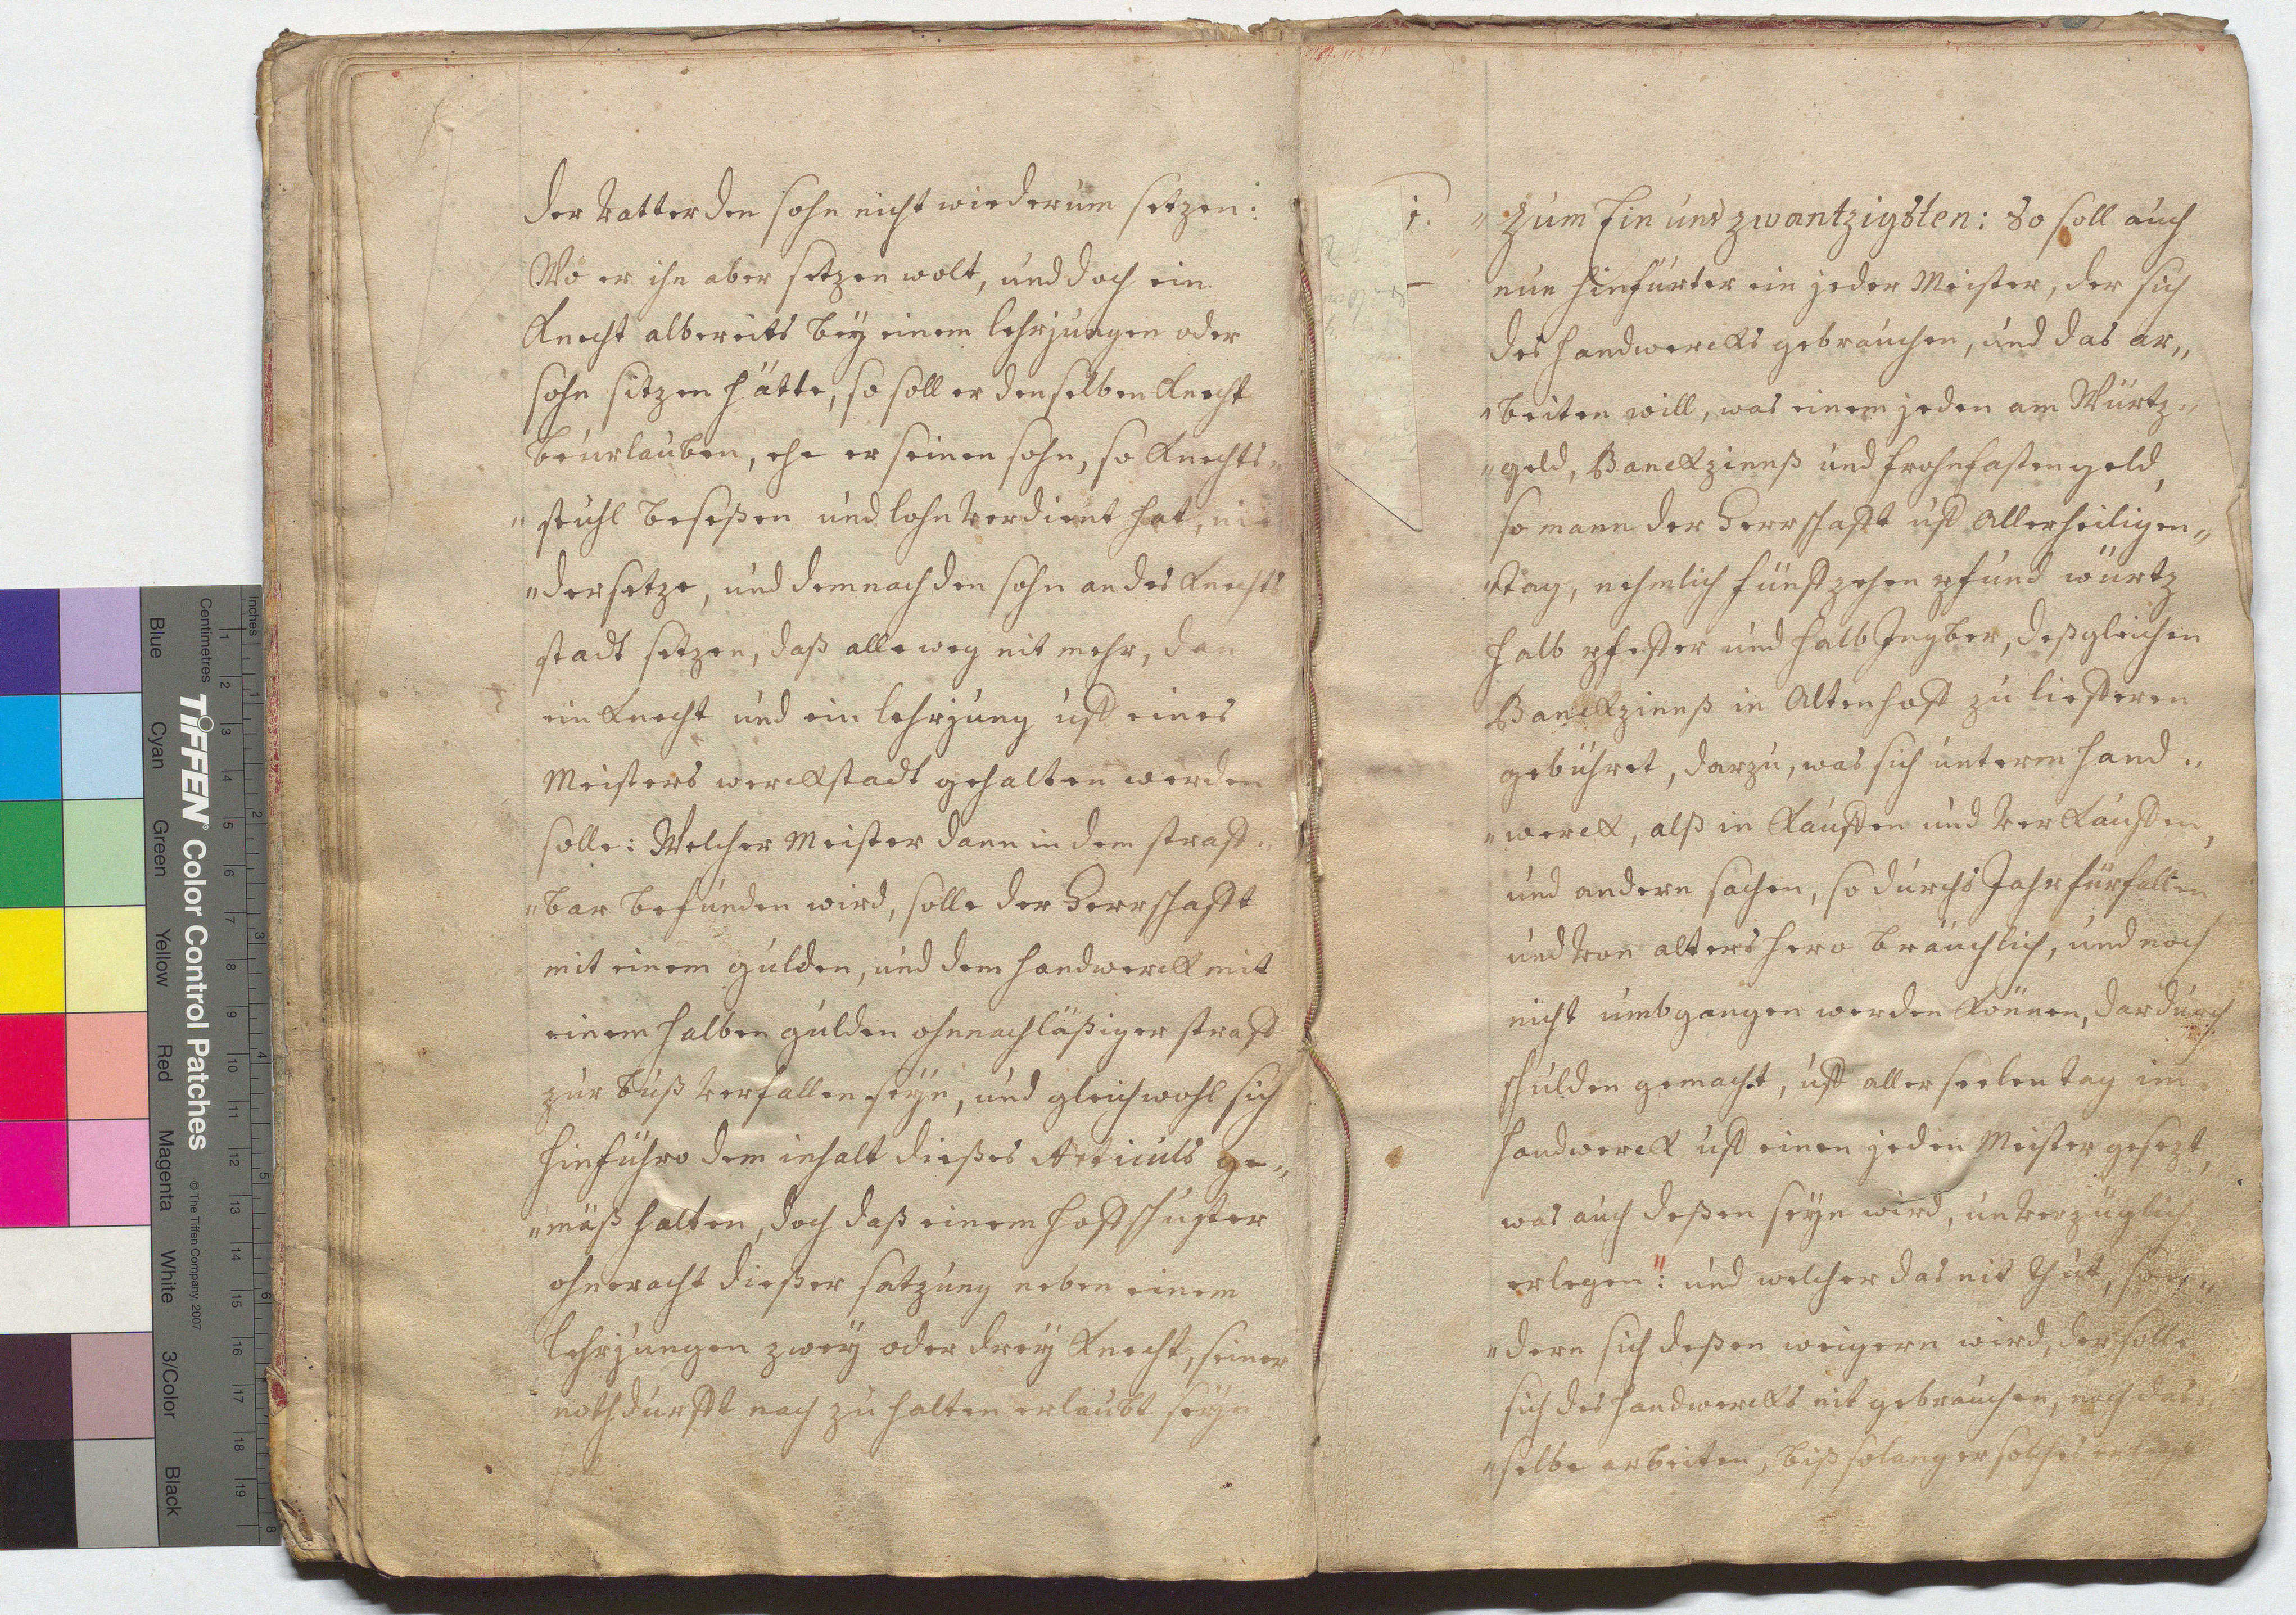 der Vatter den sohn nicht wiederum setzen:
Wo er ihn aber setzen wolt, und doch ein
Knecht albereits beÿ einem lehrjungen oder
sohn sitzen hätte, so soll er denselben Knecht
beurlauben, ehe er seinen sohn, so Knechts„
„stuhl beseßen und lohn Verdient hat, nie
„dersetze, und demnach den sohn an des Knechts
stadt setzen, daß alleweg nit mehr, dan
ein Knecht und ein lehrjung uff eines
Meisters werckstadt gehalten werden
solle: Welcher Meister dann in dem straff„
„bar befunden wird, solle der Herrschafft
mit einem gulden, und dem handwerck mit
einem halben gulden ohnnachläßiger straff
zur buß Verfallen seÿn, und gleichwohl sich
hinführo dem inhalt dießes Articuls ge„
„mäß halten, doch daß einem hoffschuster
ohneracht dießer satzung neben einem
lehrjungen zweÿ oder dreÿ Knecht, seiner
nothdurfft nach zu halten erlaubt seÿn
soll.
„Zum Ein und zwantzigsten: So soll auch
nun hinfürter ein jeder Meister, der sich
des handwercks gebrauchen, und das ar„
„beiten will, was einem jeden am Würtz„
„geld, Banckzinnß und frohnfastengeld,
so mann der Herrschafft uff Allerheiligen„
„tag, nehmlich fünffzehen pfund würtz
halb pfeffer und halb Ingber, deßgleichen
Banckzinnß in Altenhoff zu liefferen
gebühret, darzu, was sich unterm hand„
„werck, alß in Kauffen und Verkauffen,
und andern sachen, so durchs Jahr fürfallen
und Von alters hero bräuchlich, und noch
nicht umbgangen werden können, dardurch
schulden gemacht, uff allerseelentag im
handwerck uff einen jeden Meister gesezt,
was auch deßen seÿn wird, unverzüglich
erlegen: und welcher das nit thut, son„
„dern sich deßen weigern wird, der solle
sich des handwercks nit gebrauchen, noch das„
„selbe arbeiten, biß solang er solches erlegt
Inches
Centimetres
TIFFEN® Color Control Patches
© The Tiffen Company, 2007
Blue Cyan Green Yellow Red Magenta White 3/Color Black